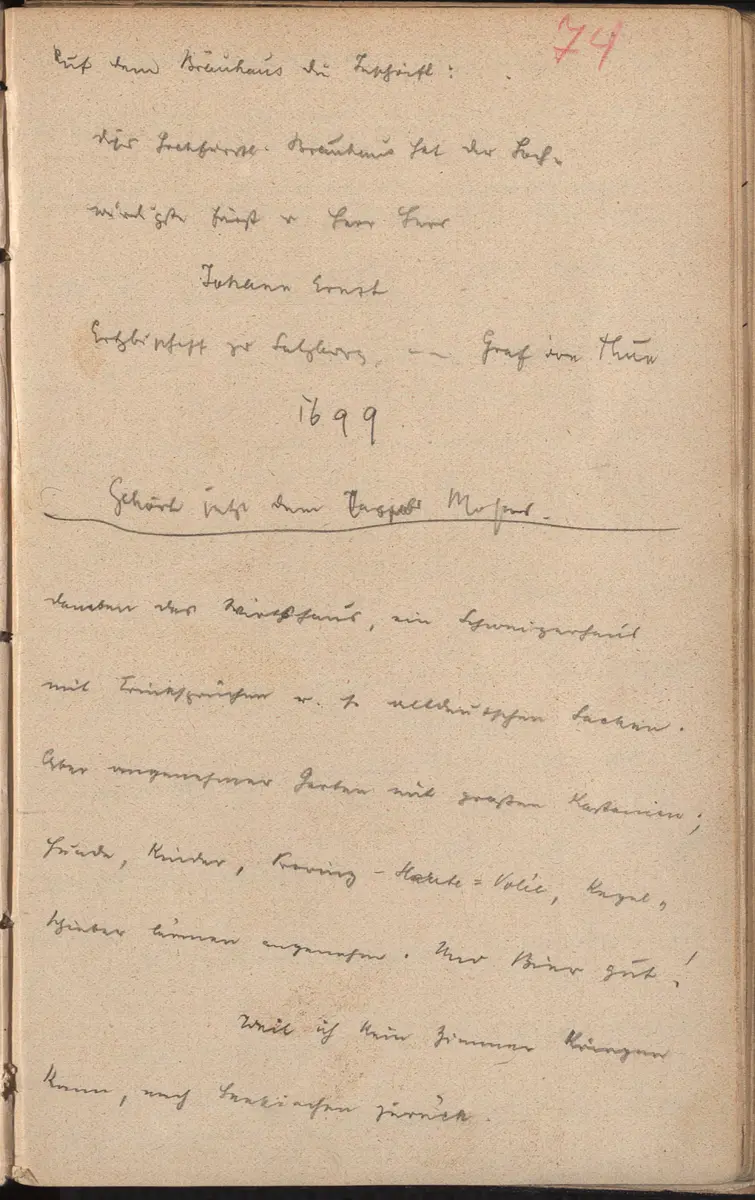 74
Auf dem Bräuhaus die Inschrift:
dis Hochfürstl. Bräuhaus hat der Hoch-
würdigste Fürst u Herr Herr
Johann Ernst
Ertzbischoff zu Saltzburg, Graf von Thun
1699
Gehört jetzt dem Moser.
daneben das Wirthshaus, ein Schweizerhaus
mit Trinksprüchen u. so altdeutschen Sachen.
Aber angenehmer Garten mit großen Kastanien;
Hunde, Kinder, Volk, Kegel-
schieber lärmen angenehm. Und Bier gut!
Weil ich kein Zimmer kriegen
kann, nach Seekirchen zurück.